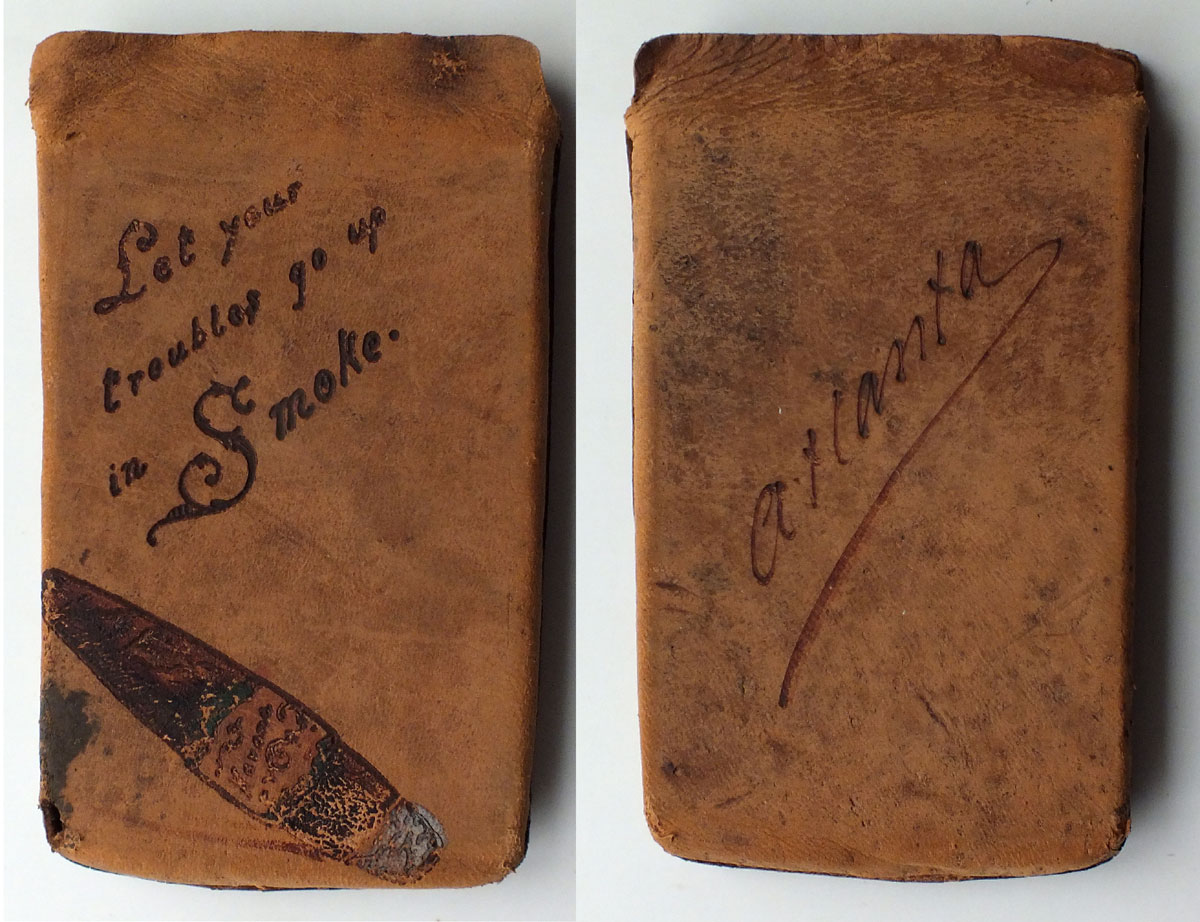 Let your
troubles go up
in Smoke.
atlanta